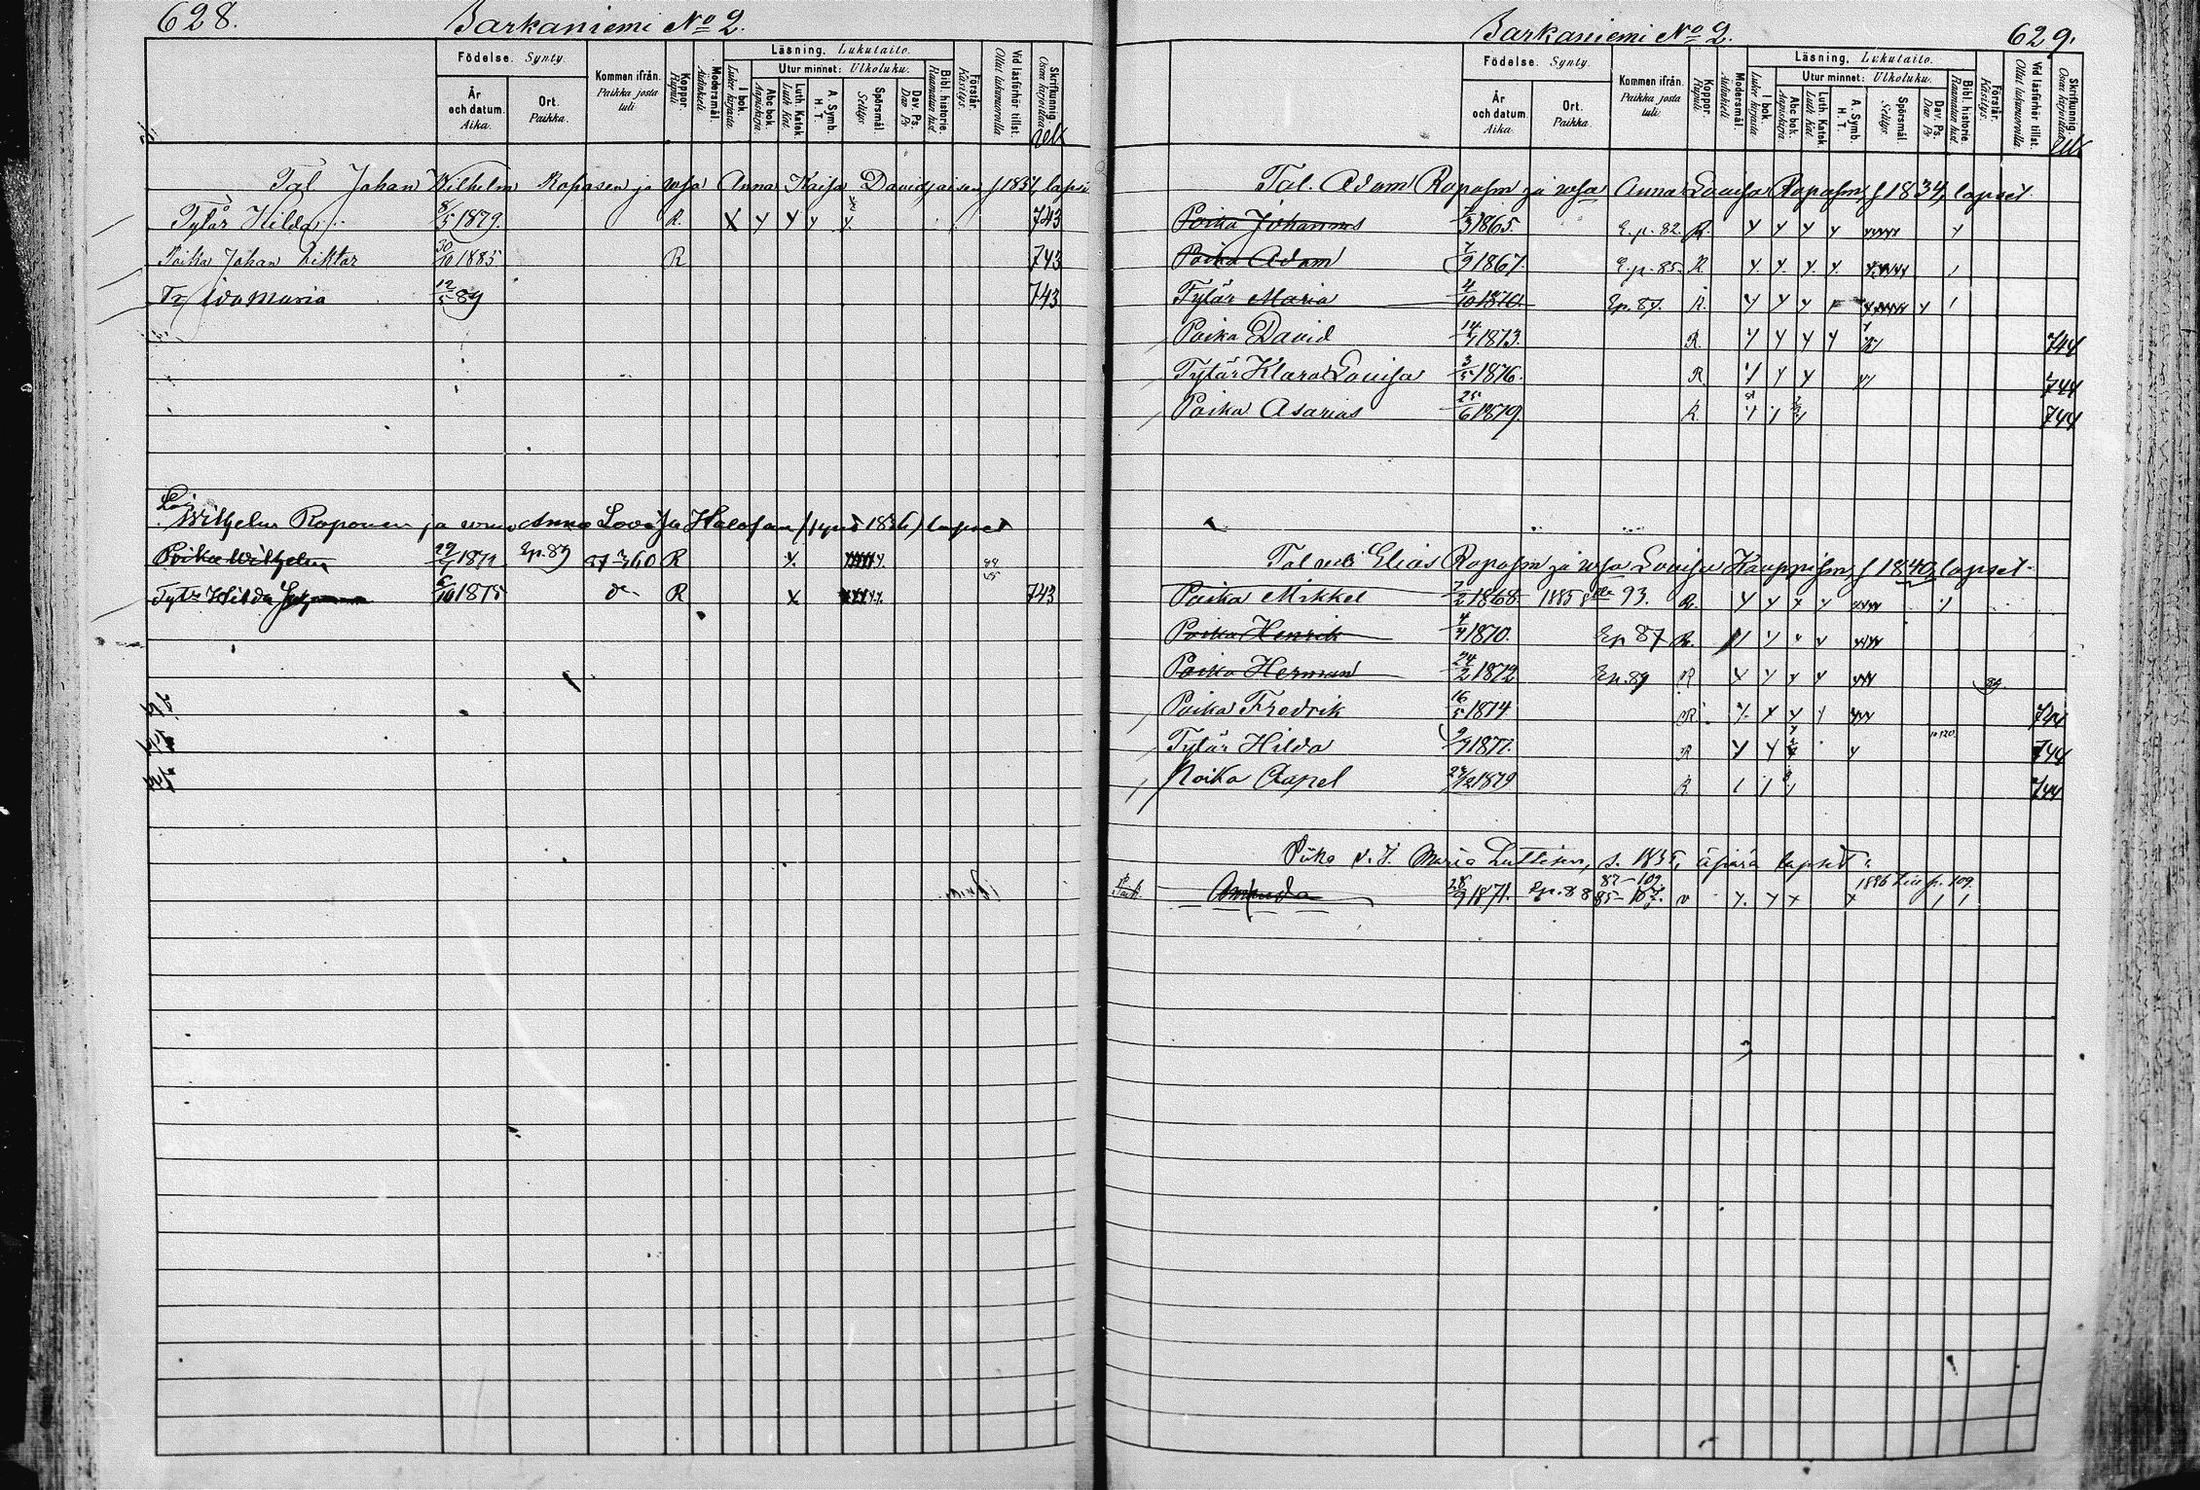 628.
Barkaniemi No 2.
Födelse. Synty.
År och datum. Aika.
Ort. Paikka.
Kommen ifrån. Paikka josta tuli.
Koppor. Rupuli.
Modersmål. Äidinkieli
Läsning. Lukutaito.
I bok. Lukee kirjasta
Utur minnet: Ulkoluku.
Abc bok. Aapiskirja.
Luth. Katek. Luth Kat.
A. Symb. H. T.
Spörsmål. Selitys
Dav. Ps. Dav. Ps
Bibl. historie. Raamatun hist.
Förstår. Käsitys.
Vid läsförhör tillst. Ollut lukuvuorolla
Skrifkunnig. Osaa kirjoittaa
Tal Johan Wilhelm Roposen ja wso Anna Kaisa Davidjaisen f 1851, lapsi
Tytär Hilda 8/5 1879. R. 743
Poika Johan Viktor 30/10 1885 R 743
Tr Ida Maria 12/5 89 743
Lois Wilhelm Roponen ja wmo Anna Lovisa Halosen (synt 1836) lapset
Poika Wilhelm 1871 Ep. 89 R
Tytr Hilda 6/10 1875 R 743
629.
Barkaniemi No 2.
Födelse. Synty.
År och datum. Aika.
Ort. Paikka.
Kommen ifrån. Paikka josta tuli.
Koppor. Rupuli.
Modersmål. Äidinkieli
Läsning. Lukutaito.
I bok. Lukee kirjasta
Utur minnet: Ulkoluku.
Abc bok. Aapiskirja.
Luth. Katek. Luth Kat.
A. Symb. H. T.
Spörsmål. Selitys
Dav. Ps. Dav. Ps
Bibl. historie. Raamatun hist.
Förstår. Käsitys.
Vid läsförhör tillst. Ollut lukuvuorolla
Skrifkunnig. Osaa kirjoittaa
Tal. Adam Roposen ja wso Anna Lovisa Roposen, f 1834, lapset.
Poika Johannes 1865. E. p. 82. R.
Poika Adam 7/9 1867. E. p. 85. R.
Tytär Maria 4/10 1870. Ep. 87. R.
Poika David 14/7 1873. R. 744
Tytär Klara Lovisa 3/5 1876. R. 744
Poika Asarias 25/6 1879. R. 744
Tal Elias Roposen ja wso Lovisa Kauppisen, f 1840, lapset.
Poika Mikkel 7/2 1868. 1885 93. R.
Poika Henrik 4/4 1870. Ep 87 R.
Poika Herman 24/2 1872 Ep. 89 R
Poika Fredrik 16/5 1874 R. 744
Tytär Hilda 1877. R 744
Poika Aapel 1879 R. 744
Piika Maria Luttinen, s. 1835, äpärä lapset:
Amanda 28/9 1871. Ep. 88